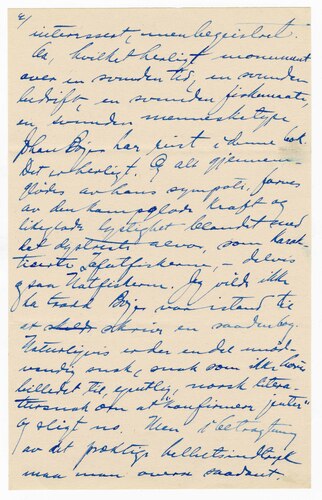 4/
interessert, men begeistret.
Aa, hvilket herligt monument
over en svunden tid, en svunden
bedrift, en svunden fiskemaate,
en svunden mennesketype
Johan Bojer har reist i denne bok.
Det er herligt. Og alt gjennem-
glødes av hans sympati, farves
av den kampglade kraft og
likeglade lystighet blandet med
det dystreste alvor, som karak-
tiserte Lofotfiskerne, – delvis
ogsaa Havfiskerne. Jeg vilde ikke
ha trodd Bojer var istand til
at skrive en saadan bog.
Naturligvis er der en del unød-
vendig snak, snak som ikke hører
billedet til, egentlig, norsk litera-
tursnak om at "konfirmere jenter"
og sligt no. Men i betragtning
av det prægtige helhetsindtryk
maa man overse saadant.